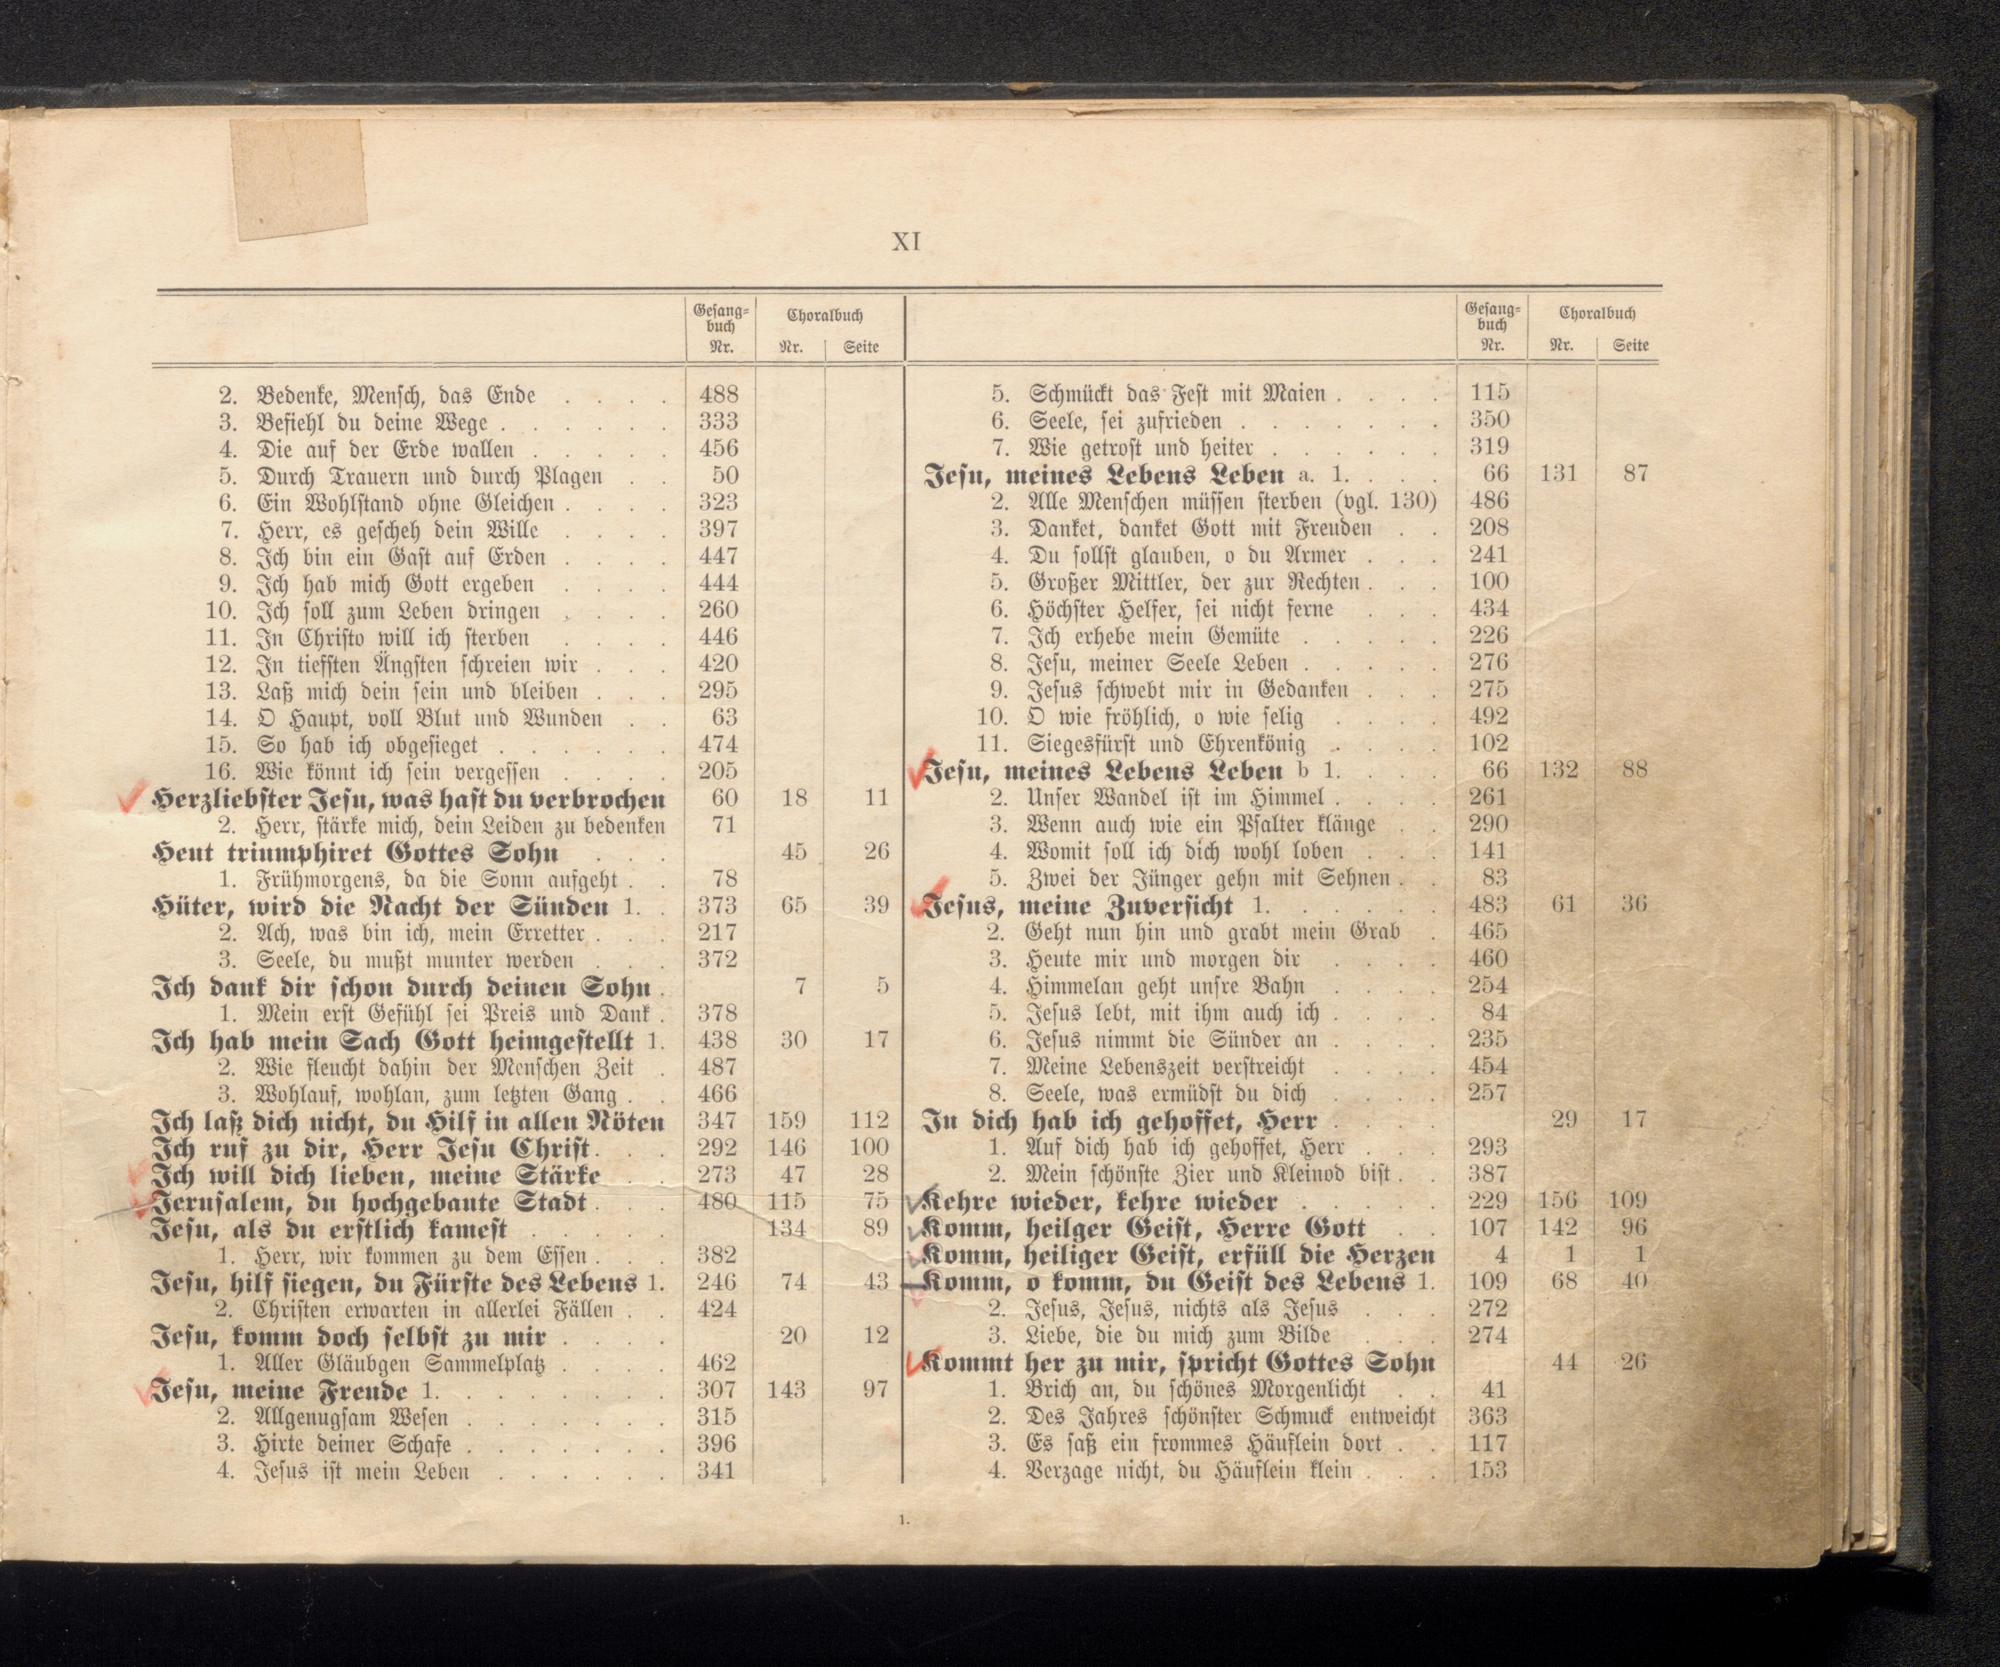 XI
Gesang-
buch
Nr.
Choralbuch
Nr. Seite
2. Bedenke, Mensch, das Ende . . . . 488
3. Befiehl du deine Wege . . . . . . 333
4. Die auf der Erde wallen . . . . . 456
5. Durch Trauern und durch Plagen . . 50
6. Ein Wohlstand ohne Gleichen . . . . 323
7. Herr, es gescheh dein Wille . . . . 397
8. Ich bin ein Gast auf Erden . . . . 447
9. Ich hab mich Gott ergeben . . . . 444
10. Ich soll zum Leben dringen . . . . 260
11. In Christo will ich sterben . . . . 446
12. In tiefsten Ängsten schreien wir . . . 420
13. Laß mich dein sein und bleiben . . . 295
14. O Haupt, voll Blut und Wunden . . 63
15. So hab ich obgesieget . . . . . . 474
16. Wie könnt ich sein vergessen . . . . 205
Herzliebster Jesu, was hast du verbrochen 60 18 11
2. Herr, stärke mich, dein Leiden zu bedenken 71
Heut triumphiret Gottes Sohn . . . 45 26
1. Frühmorgens, da die Sonn aufgeht . . 78
Hüter, wird die Nacht der Sünden 1. . 373 65 39
2. Ach, was bin ich, mein Erretter . . . 217
3. Seele, du mußt munter werden . . . 372
Ich dank dir schon durch deinen Sohn . 7 5
1. Mein erst Gefühl sei Preis und Dank . 378
Ich hab mein Sach Gott heimgestellt 1. 438 30 17
2. Wie fleucht dahin der Menschen Zeit . 487
3. Wohlauf, wohlan, zum letzten Gang . . 466
Ich laß dich nicht, du Hilf in allen Nöten 347 159 112
Ich ruf zu dir, Herr Jesu Christ . . . 292 146 100
Ich will dich lieben, meine Stärke . . 273 47 28
Jerusalem, du hochgebaute Stadt . . . 480 115 75
Jesu, als du erstlich kamest . . . . . 134 89
1. Herr, wir kommen zu dem Essen . . . 382
Jesu, hilf siegen, du Fürste des Lebens 1. 246 74 43
2. Christen erwarten in allerlei Fällen . . 424
Jesu, komm doch selbst zu mir . . . . 20 12
1. Aller Gläubgen Sammelplatz . . . . 462
Jesu, meine Freude 1. . . . . . . . 307 143 97
2. Allgenugsam Wesen . . . . . . . 315
3. Hirte deiner Schafe . . . . . . . 396
4. Jesus ist mein Leben . . . . . . 341
Gesang-
buch
Nr.
Choralbuch
Nr. Seite
5. Schmückt das Fest mit Maien . . . . 115
6. Seele, sei zufrieden . . . . . . . 350
7. Wie getrost und heiter . . . . . . 319
Jesu, meines Lebens Leben a. 1. . . . 66 131 87
2. Alle Menschen müssen sterben (vgl. 130) 486
3. Danket, danket Gott mit Freuden . . 208
4. Du sollst glauben, o du Armer . . . 241
5. Großer Mittler, der zur Rechten . . . 100
6. Höchster Helfer, sei nicht ferne . . . 434
7. Ich erhebe mein Gemüte . . . . . 226
8. Jesu, meiner Seele Leben . . . . . 276
9. Jesus schwebt mir in Gedanken . . . 275
10. O wie fröhlich, o wie selig . . . . 492
11. Siegesfürst und Ehrenkönig . . . . 102
Jesu, meines Lebens Leben b 1. . . . 66 132 88
2. Unser Wandel ist im Himmel . . . . 261
3. Wenn auch wie ein Psalter klänge . . 290
4. Womit soll ich dich wohl loben . . . 141
5. Zwei der Jünger gehn mit Sehnen . . 83
Jesus, meine Zuversicht 1. . . . . . . 483 61 36
2. Geht nun hin und grabt mein Grab . 465
3. Heute mir und morgen dir . . . . 460
4. Himmelan geht unsre Bahn . . . . 254
5. Jesus lebt, mit ihm auch ich . . . . 84
6. Jesus nimmt die Sünder an . . . . 235
7. Meine Lebenszeit verstreicht . . . . 454
8. Seele, was ermüdst du dich . . . . 257
In dich hab ich gehoffet, Herr . . . . 29 17
1. Auf dich hab ich gehoffet, Herr . . . 293
2. Mein schönste Zier und Kleinod bist . . 387
Kehre wieder, kehre wieder . . . . . 229 156 109
Komm, heilger Geist, Herre Gott . . 107 142 96
Komm, heiliger Geist, erfüll die Herzen 4 1 1
Komm, o komm, du Geist des Lebens 1. 109 68 40
2. Jesus, Jesus, nichts als Jesus . . . 272
3. Liebe, die du mich zum Bilde . . . 274
Kommt her zu mir, spricht Gottes Sohn 44 26
1. Brich an, du schönes Morgenlicht . . 41
2. Des Jahres schönster Schmuck entweicht 363
3. Es saß ein frommes Häuflein dort . . 117
4. Verzage nicht, du Häuflein klein . . . 153
1.